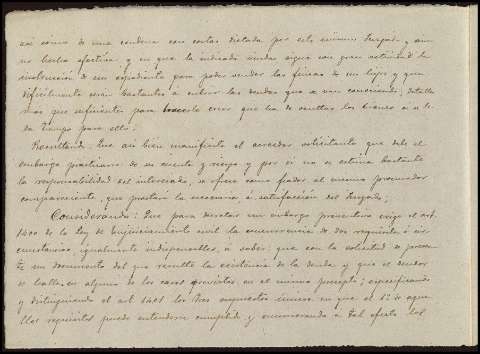 asi como de una condena con costas dictada por este mismo Juzgado, aun
no hecha efectiva y en que la indicada viuda sigue con gran actividad la
tramitacion de un expediente para poder vender las fincas de sus hijos y que
dificilmente seran bastantes á cubrir las deudas que se van conociendo, detalles
mas que suficientes para hacerlo creer que ha de ocultar los bienes si se le
da tiempo para ello;
Resultando: Que asi bien manifiesta el acreedor solicitante que debe el
embargo practicarse de su cuenta y riesgo y por si no se estima bastante
la responsabilidad del interesado, se ofrece como fiador el mismo procurador
compareciente, que prestará la necesaria á satisfacción del Juzgado;
Considerando: Que para decretar un embargo preventivo exige el art.
1400 de la Ley de Enjuiciamiento civil la concurrencia de dos requisitos ó cir
cunstancias igualmente indispensables, á saber; que con la solicitud se presen
te un documento del que resulte la existencia de la deuda y que el deudor
se halle en alguno de los casos previstos en el mismo precepto; especificando
y distinguiendo el art. 1401 los tres supuestos únicos en que el 1º de aque
llos requisitos puede entenderse cumplido y enumerando á tal efecto los